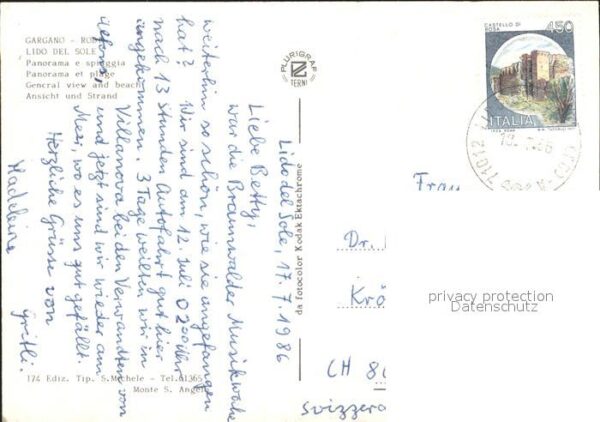 GARGANO - RO
LIDO DEL SOLE
Panorama e spiaggia
Panorama et plage
General view and beach
Ansicht und Strand
PLURIGRAF
TERNI
CASTELLO DI ROSA
450
ITALIA
71012
Lido del Sole, 17.7.1986
Liebe Betty,
war die Braunwalder Musikwoche
weiterhin so schön, wie sie angefangen
hat? Wir sind am 12. Juli 02⁰⁰ Uhr
nach 13 Stunden Autofahrt gut hier
angekommen. 3 Tage weilten wir in
Villanova bei den Verwandten von
Alfons, und jetzt sind wir wieder am
Meer, wo es uns gut gefällt.
Herzliche Grüsse von
Madeleine Gritli.
da fotocolor Kodak Ektachrome
Frau
Dr.
Krö
CH 86
Svizzera
privacy protection
Datenschutz
174 Ediz. Tip. S. Michele - Tel. 61365
Monte S. Angel